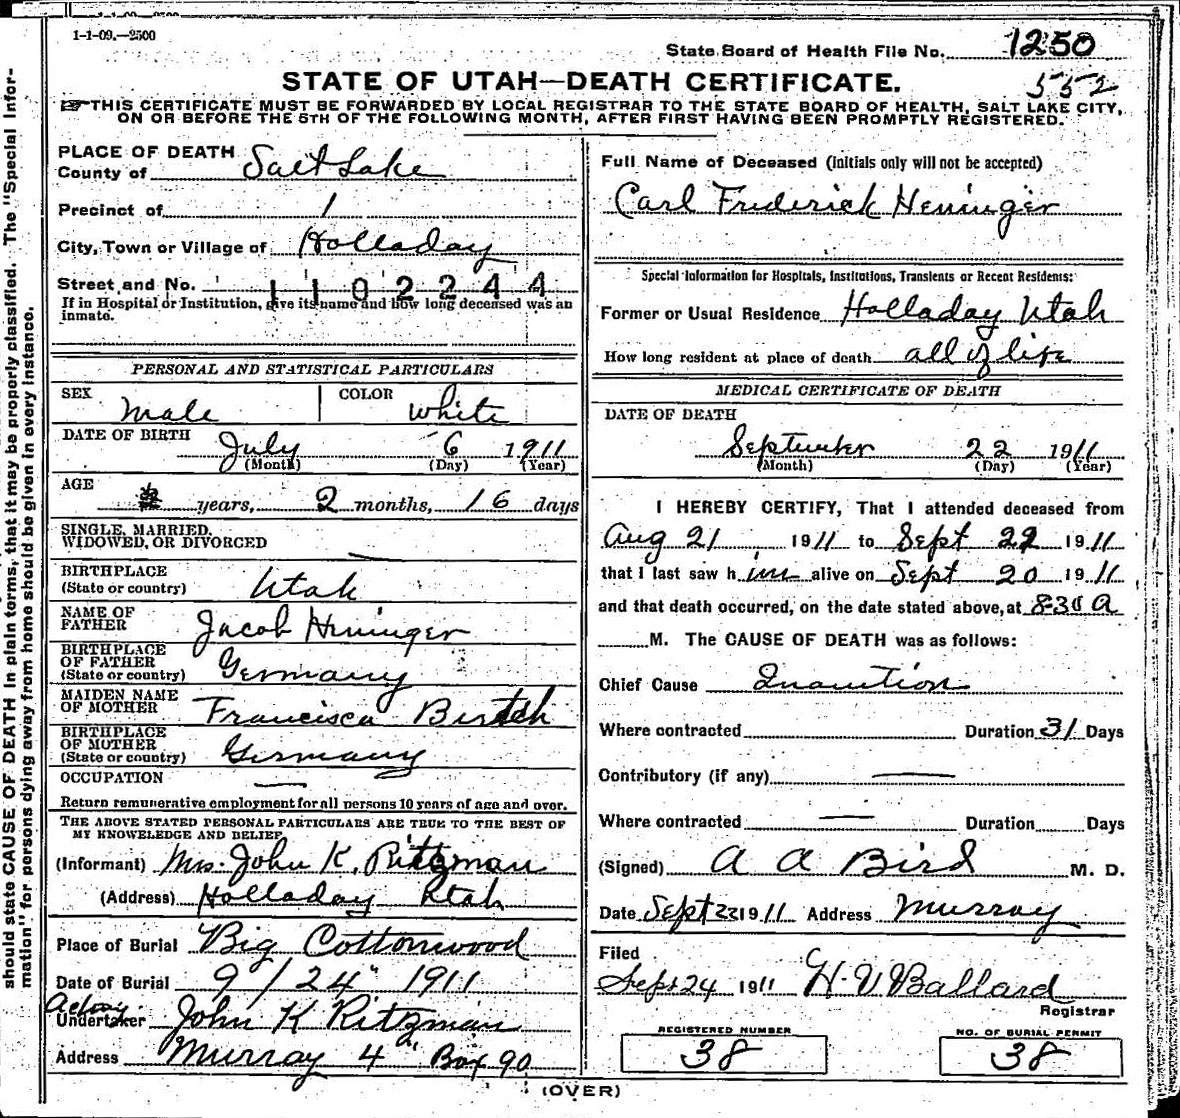 1-1-09.—2500
State Board of Health File No. 1250
552
STATE OF UTAH—DEATH CERTIFICATE.
☞THIS CERTIFICATE MUST BE FORWARDED BY LOCAL REGISTRAR TO THE STATE BOARD OF HEALTH, SALT LAKE CITY,
ON OR BEFORE THE 5TH OF THE FOLLOWING MONTH, AFTER FIRST HAVING BEEN PROMPTLY REGISTERED.
should state CAUSE OF DEATH in plain terms, that it may be properly classified. The "Special Infor-
mation" for persons dying away from home should be given in every instance.
PLACE OF DEATH
County of Salt Lake
Precinct of 1
City, Town or Village of Holladay
Street and No. 1102244
If in Hospital or Institution, give its name and how long deceased was an
inmate.
PERSONAL AND STATISTICAL PARTICULARS
SEX Male COLOR White
DATE OF BIRTH July 6 1911
(Month) (Day) (Year)
AGE years, 2 months, 16 days
SINGLE, MARRIED,
WIDOWED, OR DIVORCED —
BIRTHPLACE
(State or country) Utah
NAME OF
FATHER Jacob Heninger
BIRTHPLACE
OF FATHER
(State or country) Germany
MAIDEN NAME
OF MOTHER Francisca
BIRTHPLACE
OF MOTHER
(State or country) Germany
OCCUPATION —
Return remunerative employment for all persons 10 years of age and over.
THE ABOVE STATED PERSONAL PARTICULARS ARE TRUE TO THE BEST OF
MY KNOWELEDGE AND BELIEF
(Informant) Mrs. John K. Ritzman
(Address) Holladay Utah
Place of Burial Big Cottonwood
Date of Burial 9/24" 1911
Acting
Undertaker John K Ritzman
Address Murray 4" Box 90
Full Name of Deceased (Initials only will not be accepted)
Carl Frederick Heninger
Special Information for Hospitals, Institutions, Transients or Recent Residents:
Former or Usual Residence Holladay Utah
How long resident at place of death all of life
MEDICAL CERTIFICATE OF DEATH
DATE OF DEATH
September 22 1911
(Month) (Day) (Year)
I HEREBY CERTIFY, That I attended deceased from
Aug 21 1911 to Sept 22 1911
that I last saw h im alive on Sept 20 1911
and that death occurred, on the date stated above, at 8-30 A
M. The CAUSE OF DEATH was as follows:
Chief Cause Inanition
Where contracted Duration 31 Days
Contributory (if any) —
Where contracted — Duration Days
(Signed) A A Bird M. D.
Date Sept 22 1911 Address Murray
Filed
Sept 24 1911 H. V Ballard
Registrar
REGISTERED NUMBER
38
NO. OF BURIAL PERMIT
38
(OVER)